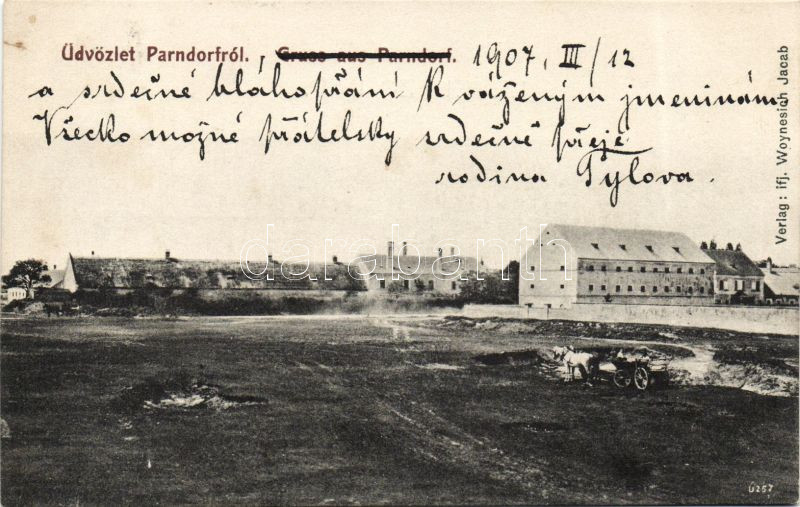 Üdvözlet Parndorfról. , Gruss aus Parndorf. 1907. III/12
a srdečné blahopřání k váženým jmeninám
Všecko možné přátelsky srdečně přeje
rodina Tylova.
Verlag: ifj. Woynesich Jacab
darabanth
6257